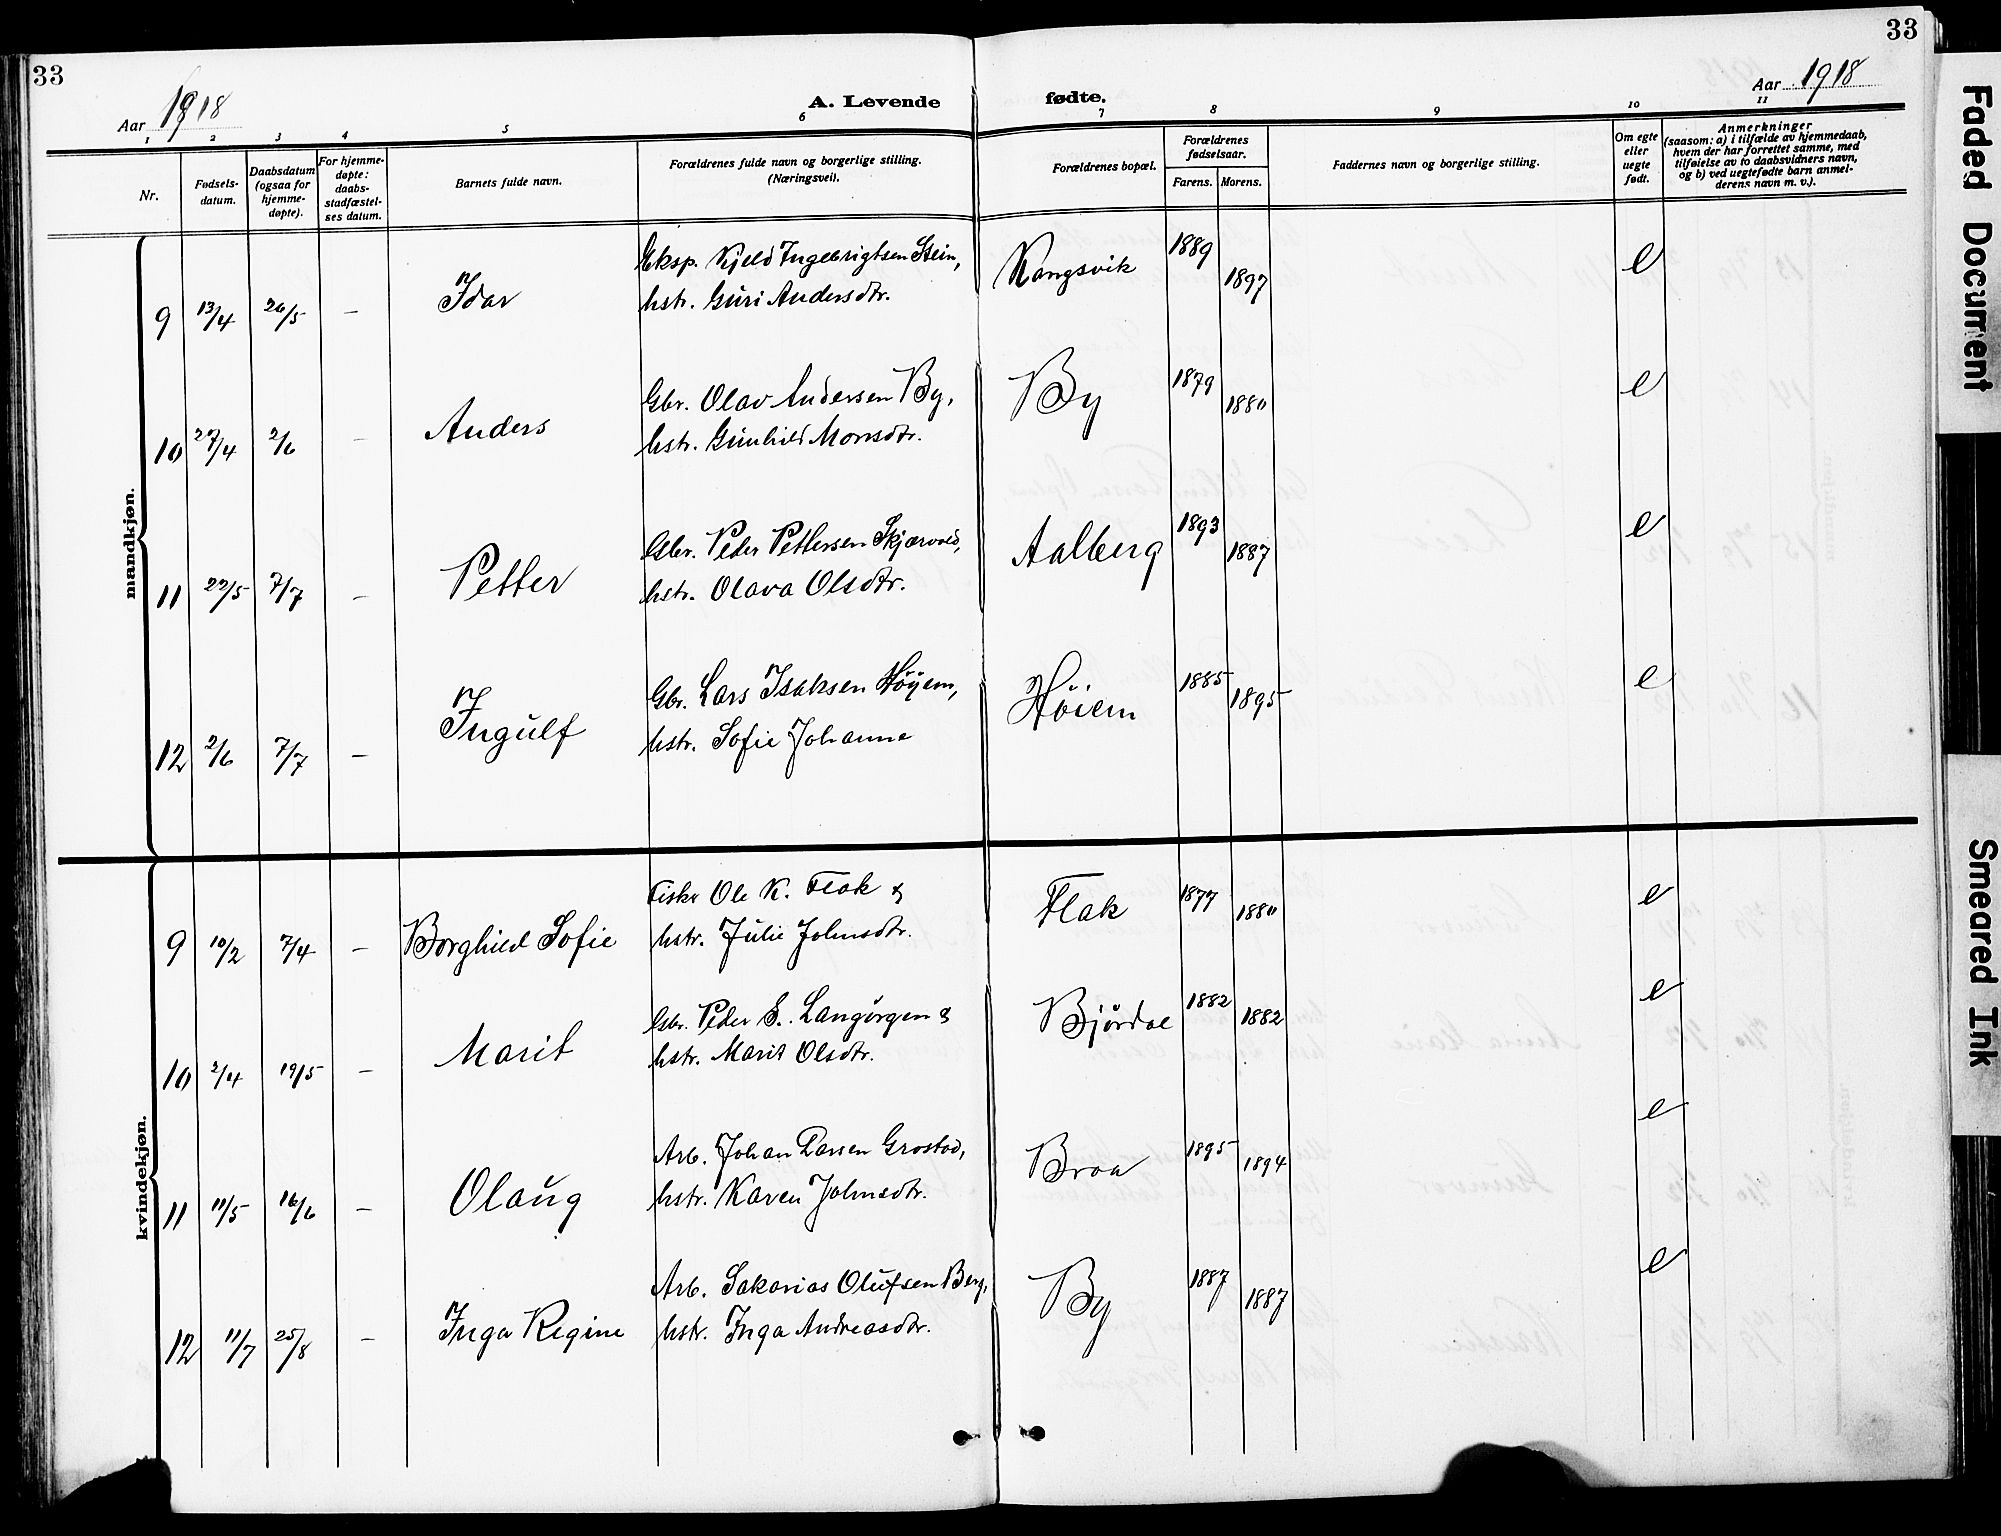 33
33
Aar 1918
A. Levende fødte.
Aar 1918
1 2 3 4 5 6 7 8 9 10 11
Nr.
Fødsels-
datum.
Daabsdatum
(ogsaa for
hjemme-
døpte).
For hjemme-
døpte:
daabs-
stadfæstel-
ses datum.
Barnets fulde navn.
Forældrenes fulde navn og borgerlige stilling.
(Næringsvei).
Forældrenes bopæl.
Forældrenes
fødselsaar.
Farens. Morens.
Faddernes navn og borgerlige stilling.
Om egte
eller
uegte
født.
Anmerkninger
(saasom: a) i tilfælde av hjemmedaab,
hvem der har forrettet samme, med
tilføielse av to daabsvidners navn,
og b) ved uegtefødte barn anmel-
derens navn m. v.).
mandkjøn.
9 13/4 20/5 – Idar Eksp. Kjeld Ingebrigtsen Stein, Rangsvik 1889 1897 e
hstr. Guri Andersdtr.
10 27/4 2/6 – Anders Gbr. Olav Andersen By, By 1879 1880 e
hstr. Gunhild Monsdtr.
11 22/5 7/7 – Petter Gbr. Peder Pettersen Skjærvold, Aalberg 1893 1887 e
hstr. Olava Olsdtr.
12 2/6 7/7 – Ingulf Gbr. Lars Isaksen Høyem, Høiem 1885 1895 e
hstr. Sofie Johanne
kvindekjøn.
9 10/2 7/4 – Borghild Sofie Fisker Ole K. Flak & Flak 1877 1880 e
hstr. Julie Johnsdtr.
10 2/4 19/5 – Marit Gbr. Peder S. Langørgen & Bjørdal 1882 1882 e
hstr. Marit Olsdtr.
11 11/5 16/6 – Olaug Arb. Johan Larsen Grostad, Braa 1895 1894 e
hstr. Karen Johnsdtr.
12 11/7 25/8 – Inga Regine Arb. Sakarias Olufsen Berg, By 1887 1887 e
hstr. Inga Andreasdtr.
Faded Document
Smeared Ink